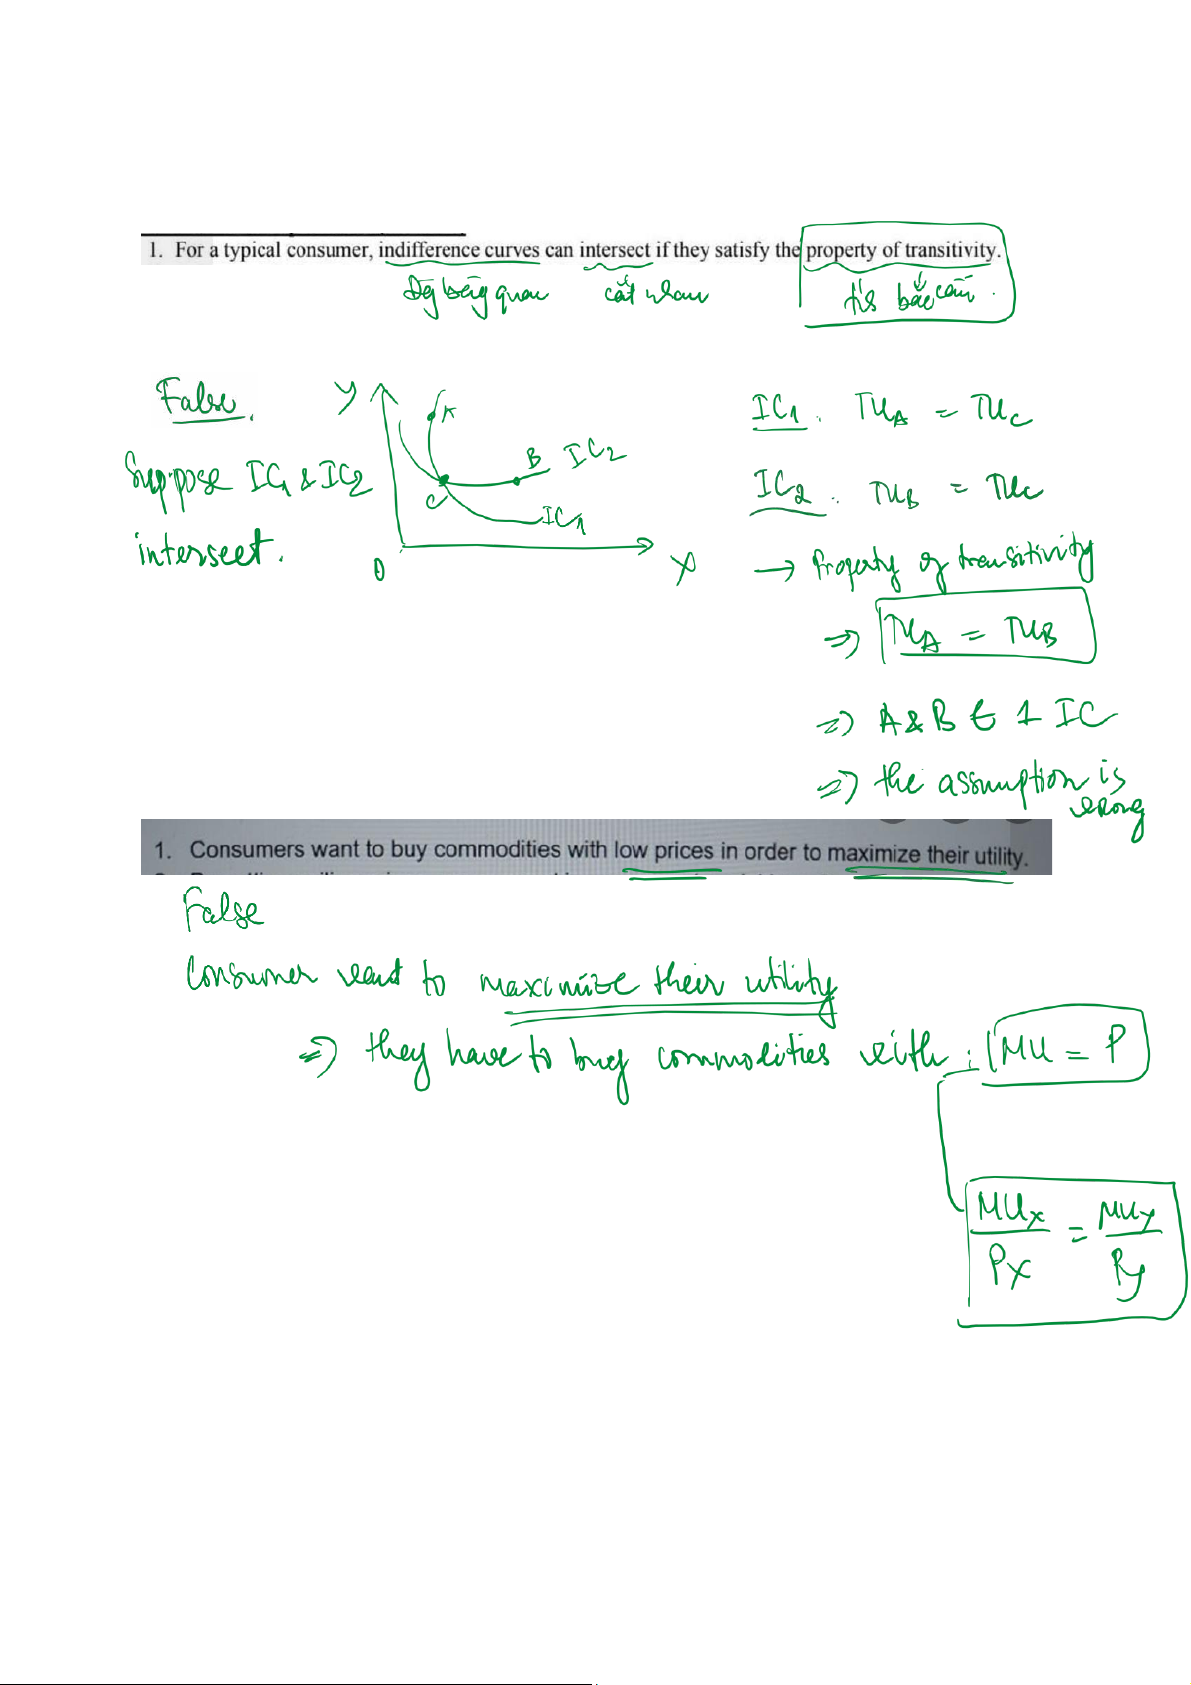 1. For a typical consumer, indifference curves can intersect if they satisfy the property of transitivity.
Đg bàng quan cắt nhau t/c bắc cầu
False.
Suppose IC1 & IC2
intersect.
Y
A
B IC2
C
IC1
0
X
IC1 : TUA = TUC
IC2 : TUB = TUC
→ Property of transitivity
⇒ TUA = TUB
⇒ A & B ∈ 1 IC
⇒ the assumption is
wrong
1. Consumers want to buy commodities with low prices in order to maximize their utility.
False
Consumer want to maximize their utility
⇒ they have to buy commodities with : MU = P
MUX / PX = MUY / PY